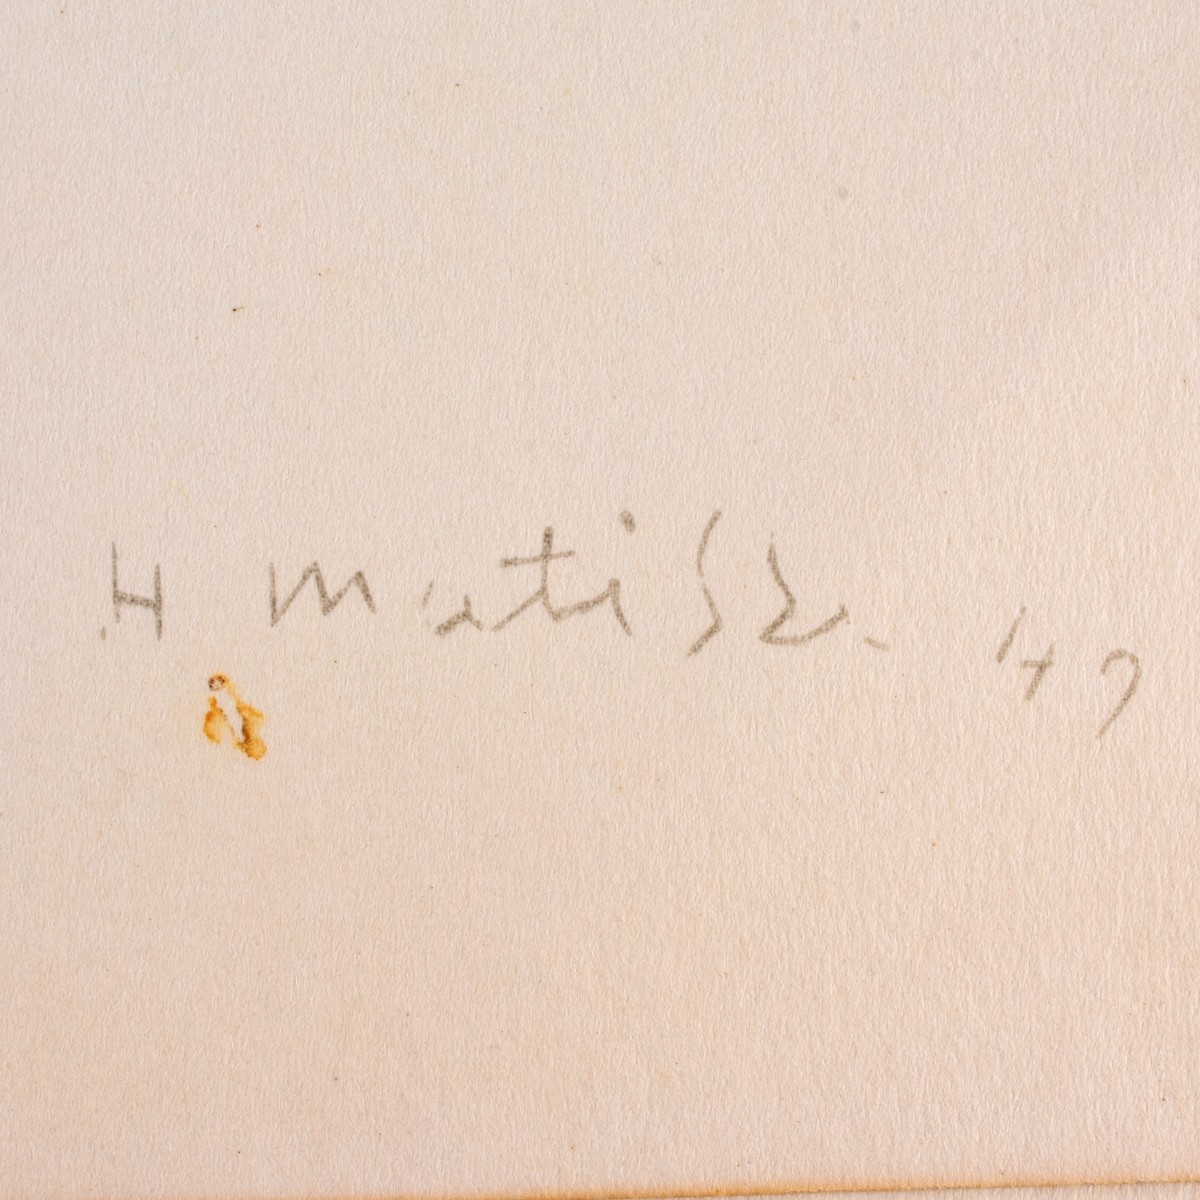 H Matisse. 47